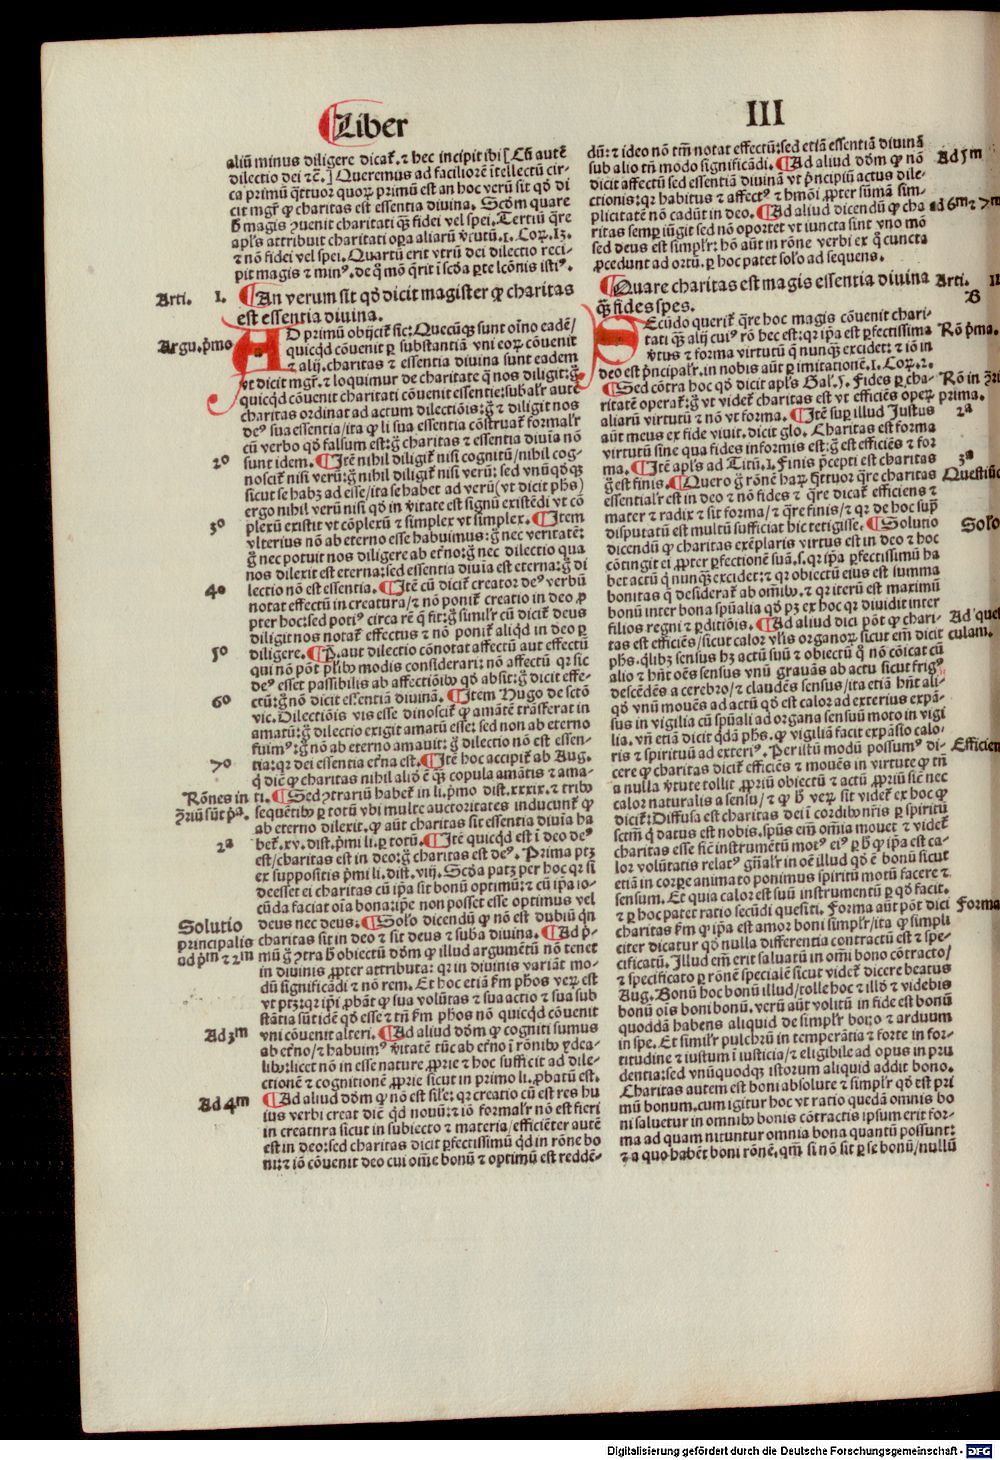 Liber
III
aliũ minus diligere dicat̃. ⁊ hec incipit ibi [ Cũ autẽ
dilectio dei ⁊c̃.] Queremus ad faciliorẽ ĩtellectũ cir-
ca primũ q̃ttuor quoꝝ primũ est an hoc verũ sit qđ di
cit mgr̃ ꝙ charitas est essentia diuina. Scđm quare
h̃ magis ɔuenit charitati q̃ꝫ fidei vel spei. Tertiũ q̃re
apl̃s attribuit charitati oꝑa aliarũ ṽtutũ.1. Coꝝ. 13.
⁊ nõ fidei vel spei. Quartũ erit vtrũ dei dilectio reci-
pit magis ⁊ minꝰ. de q̃ mõ q̃rit ĩ scđa ꝑte lcõnis istiꝰ.
Arti. I.
An verum sit qđ dicit magister ꝙ charitas
est essentia diuina.
Argu.p̃mo
AD primũ obijcit̃ sic: Quecũqꝫ sunt oĩno eadẽ/
quicq̃d cõuenit ꝑ substantiã vni eoꝝ cõuenit
⁊ alij. charitas ⁊ essentia diuina sunt eadem
vt dicit mgr̃. ⁊ loquimur de charitate q̃ nos diligit: g̃
quicq̃d cõuenit charitati cõuenit essentie: subalr̃ autẽ
charitas ordinat ad actum dilectiõis: g̃ ⁊ diligit nos
deꝰ sua essentia/ita ꝙ li sua essentia cõstruat̃ formalr̃
cũ verbo qđ falsum est: g̃ charitas ⁊ essentia diuĩa nõ
2º
sunt idem. Itẽ nihil diligit̃ nisi cognitũ/nihil cog-
noscit̃ nisi verũ: g̃ nihil diligit̃ nisi verũ: sed vnũqđqꝫ
sicut se habꝫ ad esse/ita se habet ad verũ (vt dicit ph̃s)
ergo nihil verũ nisi qđ in ṽitate est signũ existẽdi vt cõ
3º
plexũ existit vt cõplexũ ⁊ simplex vt simplex. Item
vlterius nõ ab eterno esse habuimus: g̃ nec veritatẽ:
g̃ nec potuit nos diligere ab et̃no: g̃ nec dilectio qua
nos dilexit est eterna: sed essentia diuĩa est eterna: g̃ di
4º
lectio nõ est essentia. Itẽ cũ dicit̃ creator deꝰ verbũ
notat effectũ in creatura/⁊ nõ ponit̃ creatio in deo ꝓ
pter hoc: sed potiꝰ circa rẽ q̃ fit: g̃ simil̃r cũ dicit̃ deus
diligit nos notat̃ effectus ⁊ nõ ponit̃ aliq̃d in deo ꝑ
5º
diligere. P̃. aut dilectio cõnotat affectũ aut effectũ
qui nõ põt pl̃ibꝰ modis considerari: nõ affectũ qr̃ sic
deꝰ esset passibilis ab affectiõibꝰ qđ absit: g̃ dicit effe-
6º
ctũ: g̃ nõ dicit essentiã diuinã. Item Hugo de sctõ
vic. Dilectiõis vis esse dinoscit̃ ꝙ amãtẽ trãsferat in
amatũ: g̃ dilectio exigit amatũ esse: sed non ab eterno
fuimꝰ: g̃ nõ ab eterno amauit: g̃ dilectio nõ est essen-
7º
tia: qr̃ dei essentia et̃na est. Itẽ hoc accipit̃ ab Aug.
q̃ diẽ ꝙ charitas nihil aliđ ẽ q̃ꝫ copula amãtis ⁊ ama-
Rõnes in
ti. Sed ɔtrariũ habet̃ in li. p̃mo dist.xxxix. ⁊ tribꝰ
ɔ̃riũ sũt p̃a.
sequẽtibꝰ ꝑ totũ vbi multe auctoritates inducunt̃ ꝙ
ab eterno dilexit. ꝙ aũt charitas sit essentia diuĩa ha
2ª
bet̃.xv. dist. p̃mi li. ꝑ totũ. Itẽ quicq̃d est ĩ deo deꝰ
est/charitas est in deo: g̃ charitas est deꝰ. Prima ptꝫ
ex suppositis p̃mi li. dist. viij. Scđa patꝫ per hoc qr̃ si
deesset ei charitas cũ ip̃a sit bonũ optimũ: ⁊ cũ ip̃a io-
cũda faciat oĩa bona: ip̃e non posset esse optimus vel
Solutio
deus nec deus: Solo dicendũ ꝙ nõ est dubiũ q̃n
principalis
charitas sit in deo ⁊ sit deus ⁊ suba diuina. Ad p̃-
ad p̃m ⁊ 2m
mũ g̃ ɔtra h̃ obiectũ dõm ꝙ illud argumẽtũ nõ tenet
in diuinis ꝓpter attributa: qr̃ in diuinis variãt mo-
dũ significãdi ⁊ nõ rem. Et hoc etiã ẝm ph̃os veꝝ est
vt ptꝫ: qr̃ ip̃i ꝓbãt ꝙ sua volũtas ⁊ sua actio ⁊ sua sub
stãtia sũt idẽ qđ esse ⁊ tñ ẝm ph̃os nõ quicq̃d cõuenit
Ad 3m
vni cõuenit alteri. Ad aliud dõm ꝙ cogniti sumus
ab et̃no/⁊ habuimꝰ ṽitatẽ tũc ab et̃no ĩ rõnibꝰ ydea-
libꝰ: licet nõ in esse nature ꝓprie ⁊ hoc sufficit ad dile-
ctionẽ ⁊ cognitionẽ ꝓprie sicut in primo li. ꝓbatũ est.
Ad 4m
Ad aliud dõm ꝙ nõ est sil̃e: qr̃ creatio cũ est res hu
ius verbi creat dicẽ q̃d nouũ: ⁊ iõ formalr̃ nõ est fieri
in creatura sicut in subiecto ⁊ materia/efficiẽter autẽ
est in deo: sed charitas dicit ꝑfectissimũ q̃d in rõne bo
ni: ⁊ iõ cõuenit deo cui om̃e bonũ ⁊ optimũ est reddẽ-
dũ: ⁊ ideo nõ tm̃ notat effectũ: sed etiã essentiã diuinã
Ad 5m
sub alio tñ modo significãdi. Ad aliud dõm ꝙ nõ
dicit affectũ sed essentiã diuinã vt p̃ncipiũ actus dile-
ctionis: qr̃ habitus ⁊ affectꝰ ⁊ hmõi ꝓpter sũmã sim-
ad 6m ⁊ 7m
plicitatẽ nõ cadũt in deo. Ad aliud dicendũ ꝙ cha
ritas semꝑ iũgit sed nõ oportet vt iuncta sint vno mõ
sed deus est simplr̃: hõ aũt in rõne verbi ex q̃ cuncta
ꝓcedunt ad ortũ. ꝑ hoc patet solo ad sequens.
Arti. II
Quare charitas est magis essentia diuina
B
q̃ꝫ fides spes.
Rõ p̃ma.
SEcũdo querit̃ q̃re hoc magis cõuenit chari-
tati q̃ꝫ alij cuiꝰ rõ hec est: qr̃ ip̃a est ꝑfectissima
ṽtus ⁊ forma virtutũ q̃ nunqꝫ excidet: ⁊ iõ in
deo est p̃ncipalr̃. in nobis aũt ꝑ imitationẽ.1. Coꝝ.2.
Rõ in ɔ̃ri
Sed cõtra hoc qđ dicit apl̃s Gal.5. Fides ꝑ cha-
prima.
ritatẽ operat̃: g̃ vt videt̃ charitas est vt efficiẽs opeꝝ
2ª
aliarũ virtutũ ⁊ nõ vt forma. Itẽ suꝑ illud Justus
aũt meus ex fide viuit. dicit glo. Charitas est forma
virtutũ sine qua fides informis est: g̃ est efficiẽs ⁊ for
3ª
ma. Itẽ apl̃s ad Titũ.1. Finis p̃cepti est charitas
Questiũc
g̃ est finis. Quero g̃ rõnẽ haꝝ q̃ttuor q̃re charitas
essential̃r est in deo ⁊ nõ fides ⁊ q̃re dicat̃ efficiens ⁊
mater ⁊ radix ⁊ sit forma/⁊ q̃re finis/⁊ qr̃ de hoc supͣ
Solo
disputatũ est multũ sufficiat hic tetigisse. Solutio
dicendũ ꝙ charitas exẽplaris virtus est in deo ⁊ hoc
cõtingit ei ꝓpter ꝑfectionẽ suã. s. qr̃ ip̃a ꝑfectissimũ ha
bet actũ q̃ nunqꝫ excidet: ⁊ qr̃ obiectũ eius est summa
bonitas q̃ desiderat̃ ab om̃ibꝰ. ⁊ qr̃ iterũ est maximũ
bonũ inter bona sp̃ualia qđ pꝫ ex hoc qr̃ diuidit inter
Ad quest
filios regni ⁊ ꝑditiõis. Ad aliud dici põt ꝙ chari-
culam.
tas est efficiẽs/sicut calor vl̃is organoꝝ sicut em̃ dicit
ph̃s. q̃libꝫ sensus hꝫ actũ suũ ⁊ obiectũ q̃ nõ cõicat cũ
alio ⁊ hñt oẽs sensus vnũ grauãs ab actu sicut frigꝰ
descẽdẽs a cerebro/⁊ claudẽs sensus/ita etiã hñt ali-
qđ vnũ mouẽs ad actũ qđ est calor ad exterius expã-
sus in vigilia cũ sp̃uali ad organa sensuũ moto in vigi
lia. vñ etiã dicit q̃dã ph̃s. ꝙ vigiliã facit expãsio calo-
Efficien
ris ⁊ spirituũ ad exteriꝰ. Per istũ modũ possumꝰ di-
cere ꝙ charitas dicit̃ efficiẽs ⁊ mouẽs in virtute ꝙ tñ
a nulla ṽtute tollit ꝓpriũ obiectũ ⁊ actũ ꝓpriũ sic̃ nec
calor naturalis a sensu/⁊ ꝙ h̃ veꝝ sit videt̃ ex hoc ꝙ
dicit̃: Diffusa est charitas dei ĩ cordibꝰ nr̃is ꝑ spiritũ
sctm̃ q̃ datus est nobis. sp̃us em̃ om̃ia mouet ⁊ videt̃
charitas esse sic̃ instrumẽtũ motꝰ eiꝰ ꝑ h̃ ꝙ ip̃a est ca-
lor volũtatis relatꝰ gñalr̃ in oẽ illud qđ ẽ bonũ sicut
etiã in corꝑe animato ponimus spiritũ motũ facere ⁊
sensum. Et quia calor est suũ instrumentũ ꝑ qđ facit.
Forma
⁊ ꝑ hoc patet ratio secũdi quesiti. Forma aũt põt dici
charitas ẝm ꝙ ip̃a est amor boni simplr̃/ita ꝙ simpli
citer dicatur qđ nulla differentia contractũ est ⁊ spe-
cificatũ. Illud em̃ erit saluatũ in om̃i bono cõtracto/
⁊ specificato ꝑ rõnẽ specialẽ sicut videt̃ dicere beatus
Aug. Bonũ hoc bonũ illud/tolle hoc ⁊ illđ ⁊ videbis
bonũ oĩs boni bonũ. verũ aũt volitũ in fide est bonũ
quoddã habens aliquid de simplr̃ bono ⁊ arduum
in spe. Et similr̃ pulchrũ in temperãtia ⁊ forte in for-
titudine ⁊ iustum ĩ iusticia/⁊ eligibile ad opus in pru
dentia: sed vnũquodqꝫ istorum aliquid addit bono.
Charitas autem est boni absolute ⁊ simplr̃ qđ est pri
mũ bonum. cum igitur hoc vt ratio quedã omnis bo
ni saluetur in omnibꝰ bonis cõtractis ipsum erit for-
ma ad quam nituntur omnia bona quantũ possunt:
⁊ a quo habẽt boni rõnẽ. qm̃ si nõ sit ꝑ se bonũ/nullũ
Digitalisierung gefördert durch die Deutsche Forschungsgemeinschaft - DFG